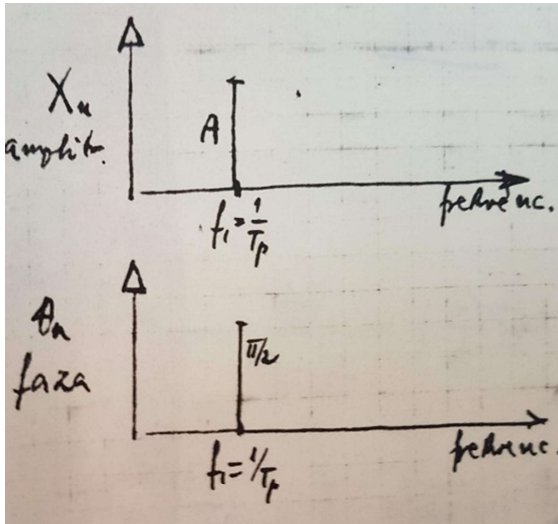 Xn
amplit.
A
f1=1/Tp
frekvenc.
θn
faza
π/2
f1=1/Tp
frekvenc.